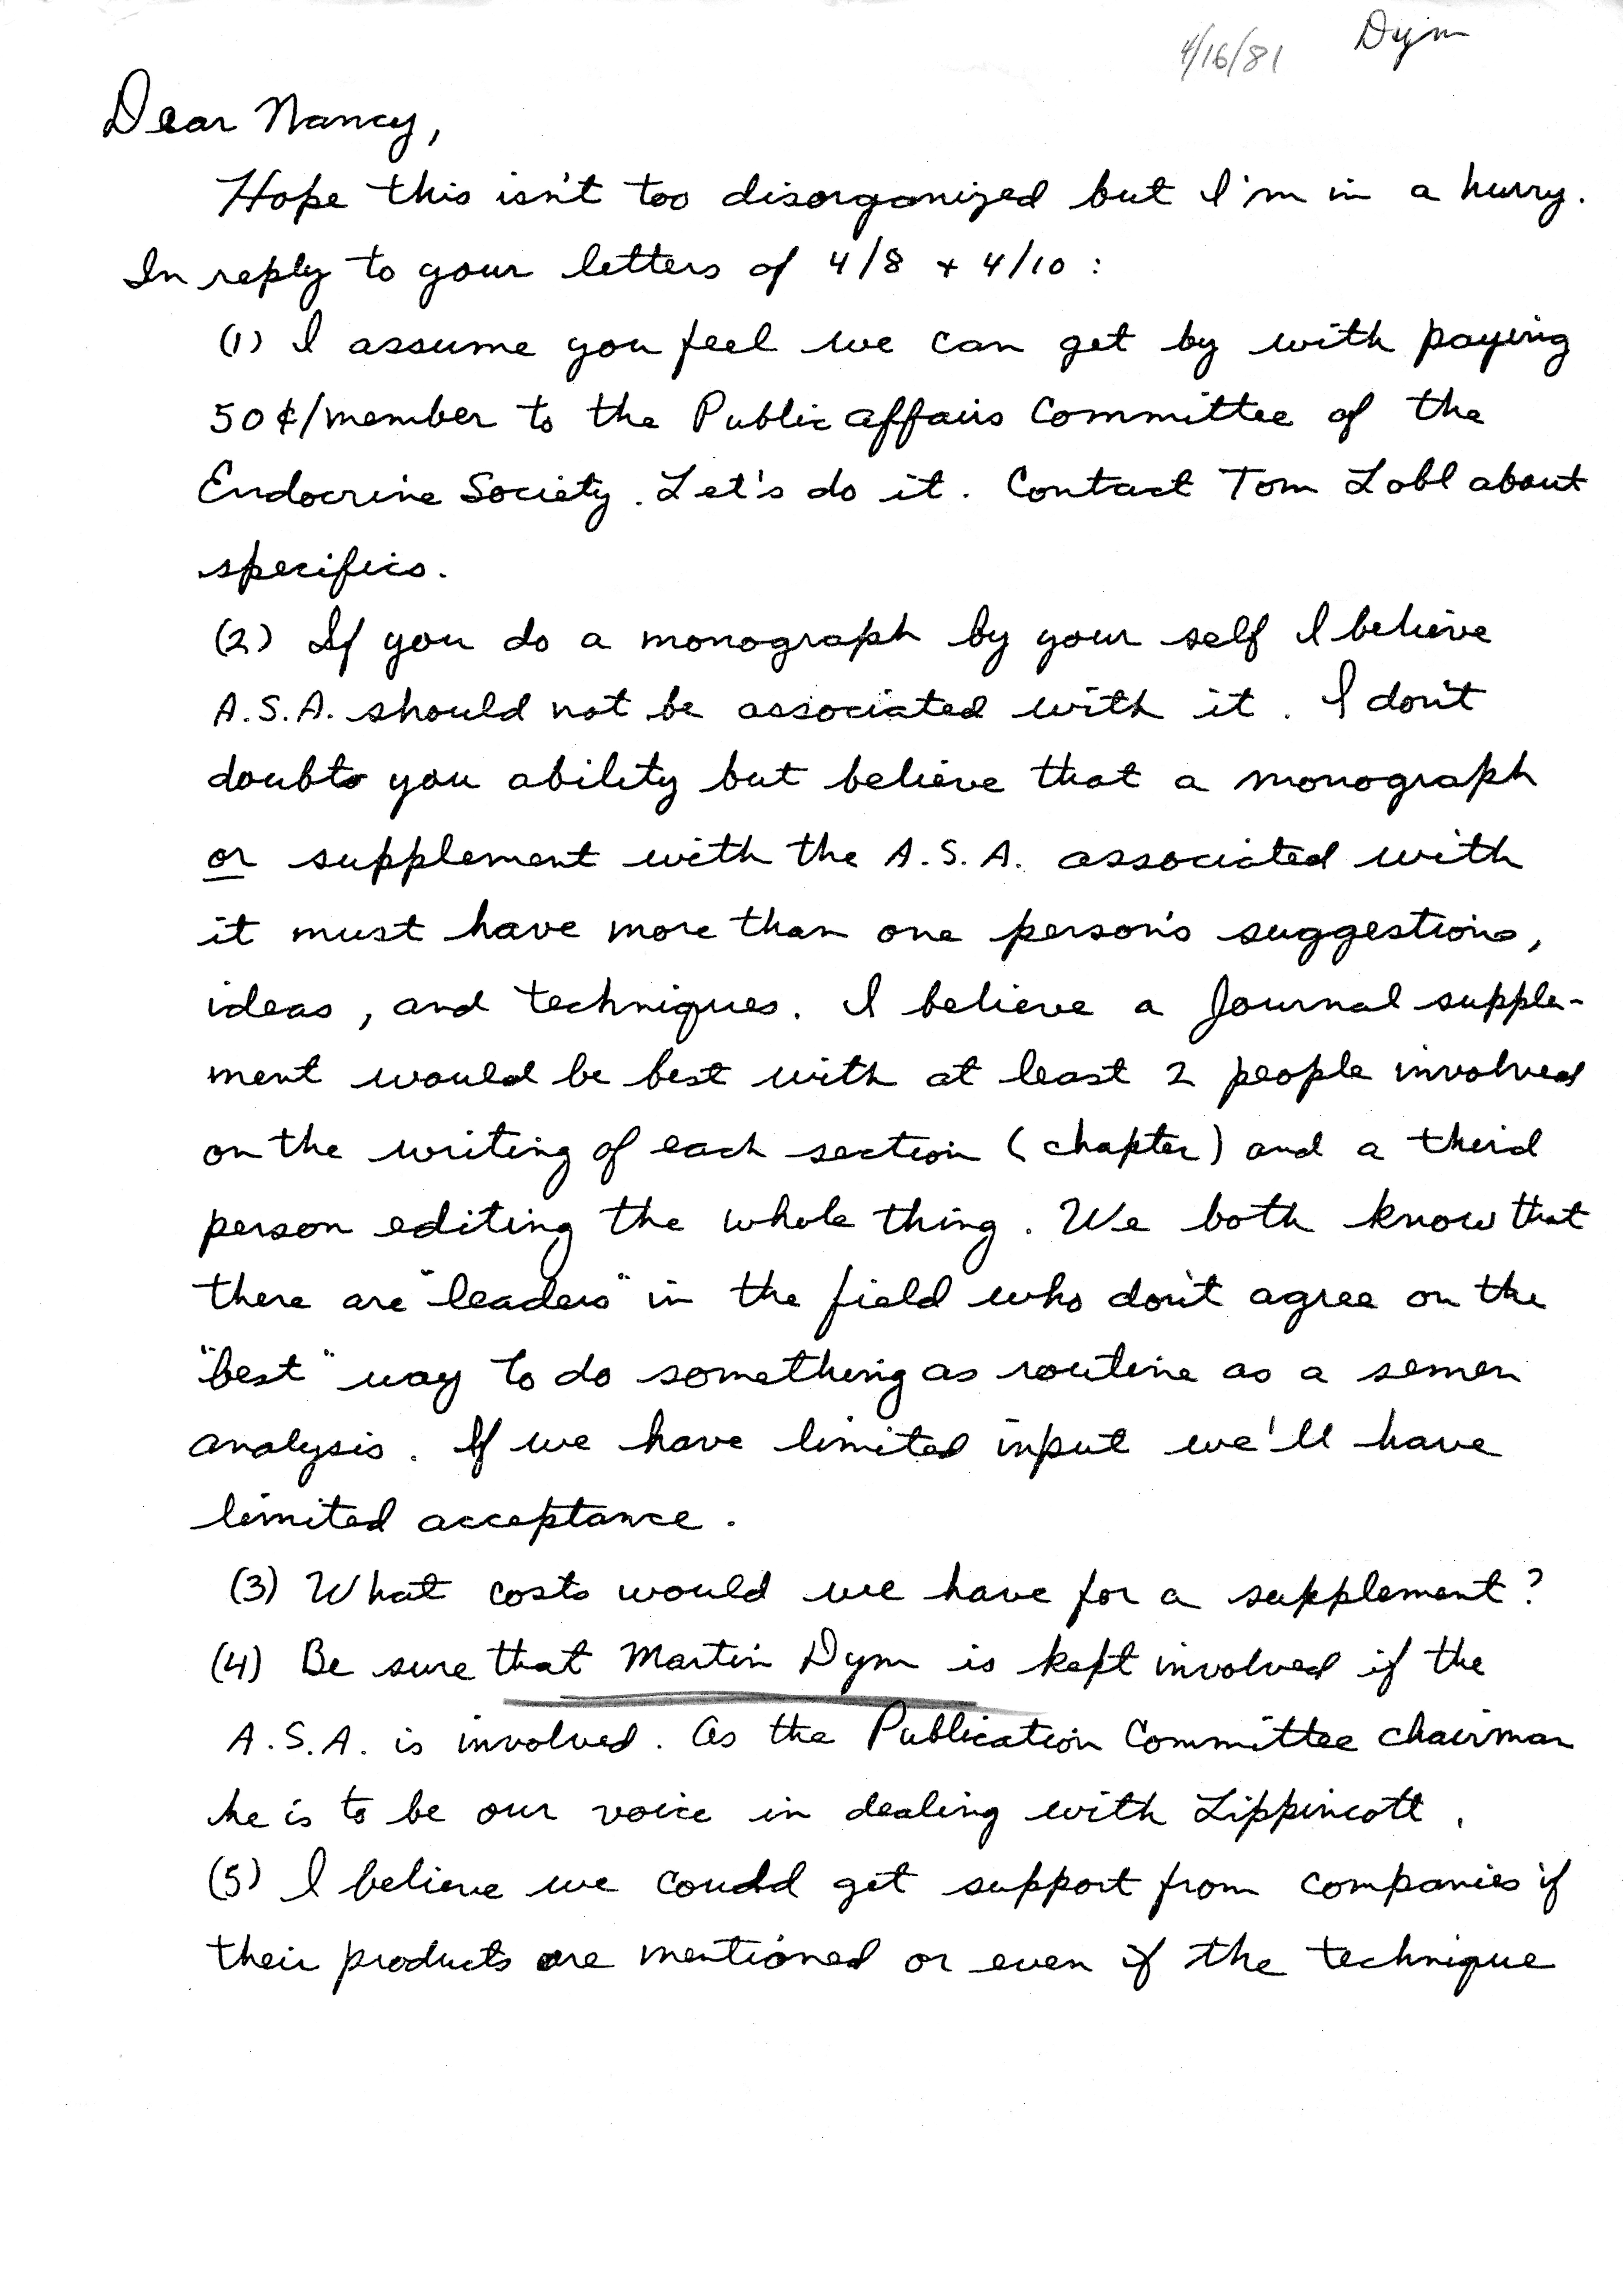 4/16/81 Dym
Dear Nancy,
Hope this isn't too disorganized but I'm in a hurry.
In reply to your letters of 4/8 + 4/10 :
(1) I assume you feel we can get by with paying
50¢/member to the Public Affairs Committee of the
Endocrine Society. Let's do it. Contact Tom Lobl about
specifics.
(2) If you do a monograph by your self I believe
A.S.A. should not be associated with it. I don't
doubt you ability but believe that a monograph
or supplement with the A.S.A. associated with
it must have more than one person's suggestions,
ideas, and techniques. I believe a Journal supple-
ment would be best with at least 2 people involved
on the writing of each section (chapter) and a third
person editing the whole thing. We both know that
there are "leaders" in the field who don't agree on the
"best" way to do something as routine as a semen
analysis. If we have limited input we'll have
limited acceptance.
(3) What costs would we have for a supplement?
(4) Be sure that Martin Dym is kept involved if the
A.S.A. is involved. As the Publication Committee chairman
he is to be our voice in dealing with Lippincott.
(5) I believe we could get support from companies if
their products are mentioned or even if the technique